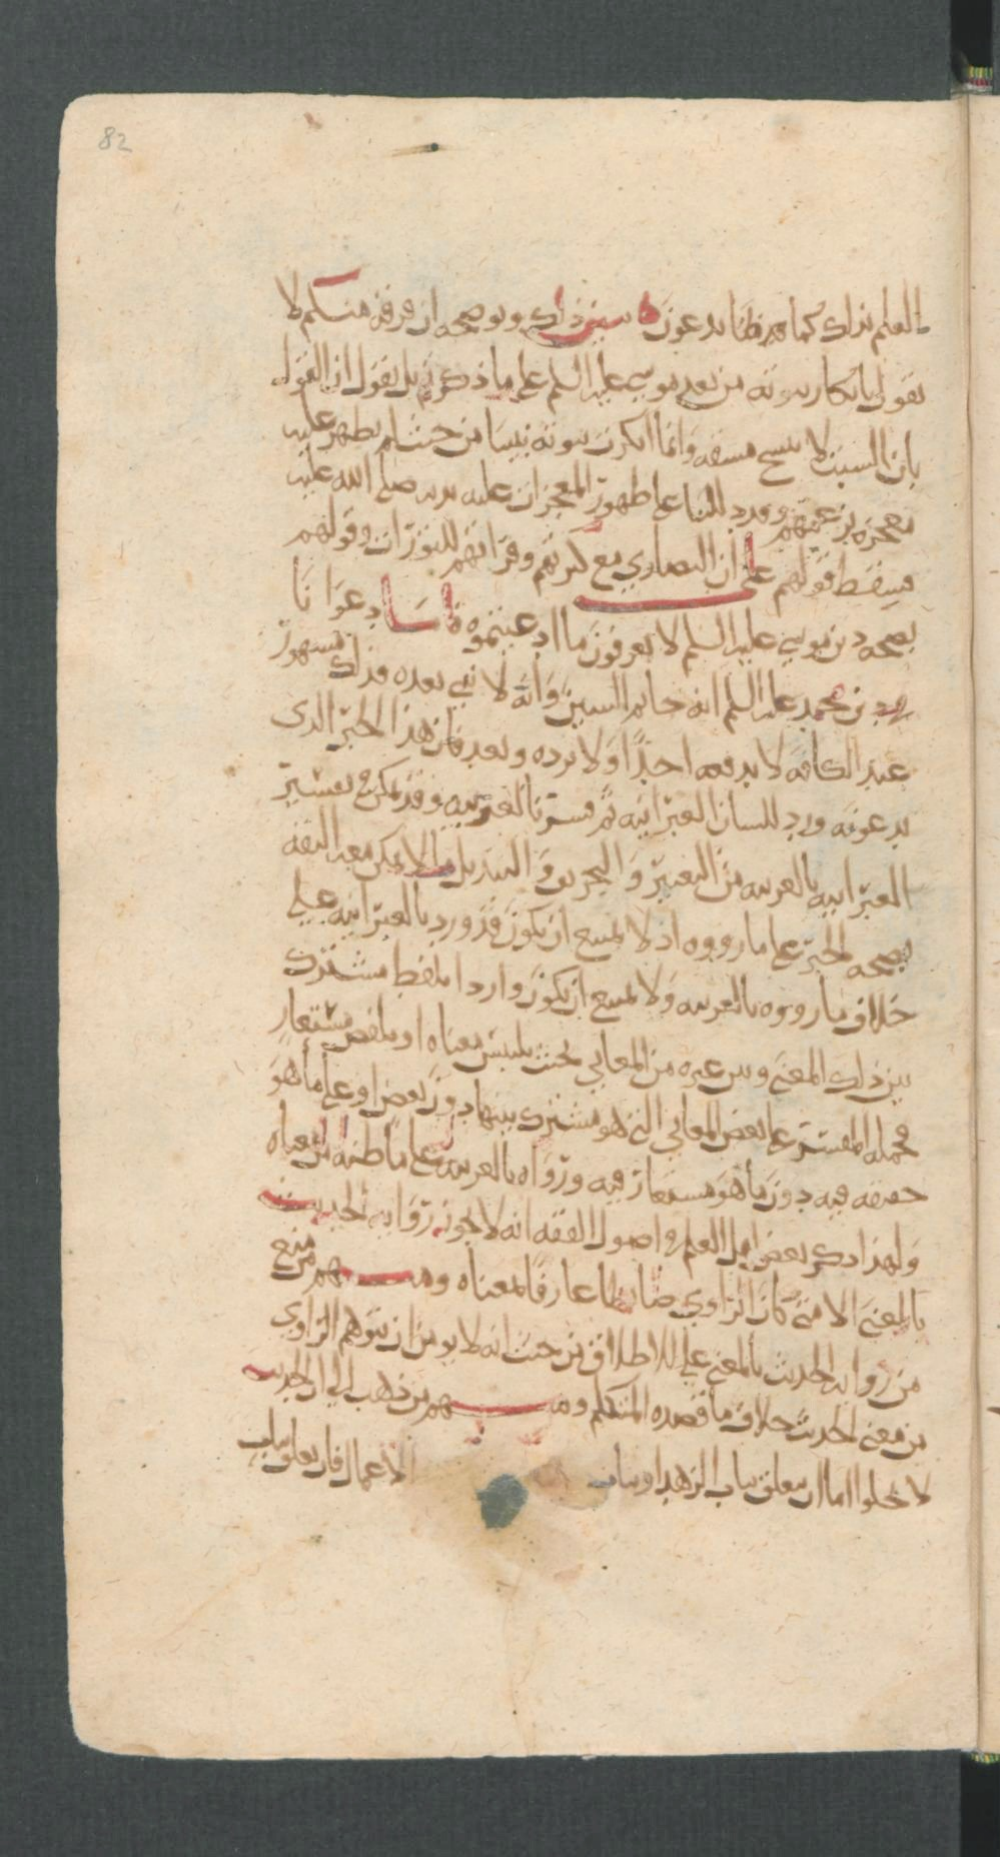 82
العلم بذلك كما قد ظنا يدعون يبين ذلك ويوضحه ان فرقة منكم لا
يقول بانكار نبوته من بعد موسى عليه السلم على ما ذكرتم بل يقول ان القول
بان السبت لا ينسخ وانما انكرت نبوة نبينا من حيث لم يظهر عليه
معجزة بزعمهم وقد دللنا على ظهور المعجزات عليه صلى الله عليه
فسقط قولهم على ان النصارى مع كثرتهم وقرآتهم للتوراة وقولهم
بصحة دين موسى عليه السلم لا يعرفون ما ادعيتموه فاما دعوانا
من دين محمد عليه السلم انه خاتم النبيين وانه لا نبي بعده فذلك مشهور
عند الكافة لا يدفعه احد ولا يرده وبعد فان هذا الخبر الذي
يدعونه ورد للسان العبرانية ثم فسر بالعربية وقد يمكن في تفسير
العبرانية بالعربية من التغيير والتحريف والتبديل ما لا يمكن معه الثقة
بصحة الخبر على ما رووه اذ لا يمتنع ان يكون قد ورد بالعبرانية على
خلاف ما رووه بالعربية ولا يمتنع ان يكون واردا بلفظ مشترك
بين ذلك المعنى وبين غيره من المعاني بحيث يلتبس معناه او بلفظ مستعار
فحمله المفسر على بعض المعاني التي هو مشترك بينها دون بعض او على ما هو
حقيقة فيه دون ما هو مستعار فيه ورواه بالعربية على ما ظنه من معناه
ولهذا ذكر بعض اهل العلم في اصول الفقه انه لا يجوز رواية الحديث
بالمعنى الا متى كان الراوي ضابطا عارفا لمعناه ومنهم من منع
من رواية الحديث بالمعنى على الاطلاق من حيث انه لا يؤمن ان يتوهم الراوي
من معنى الحديث خلاف ما قصده المتكلم ومنهم من ذهب الى ان الحديث
لا يخلوا اما ان يتعلق بباب الزهد او بباب الاعمال فان تعلق بباب